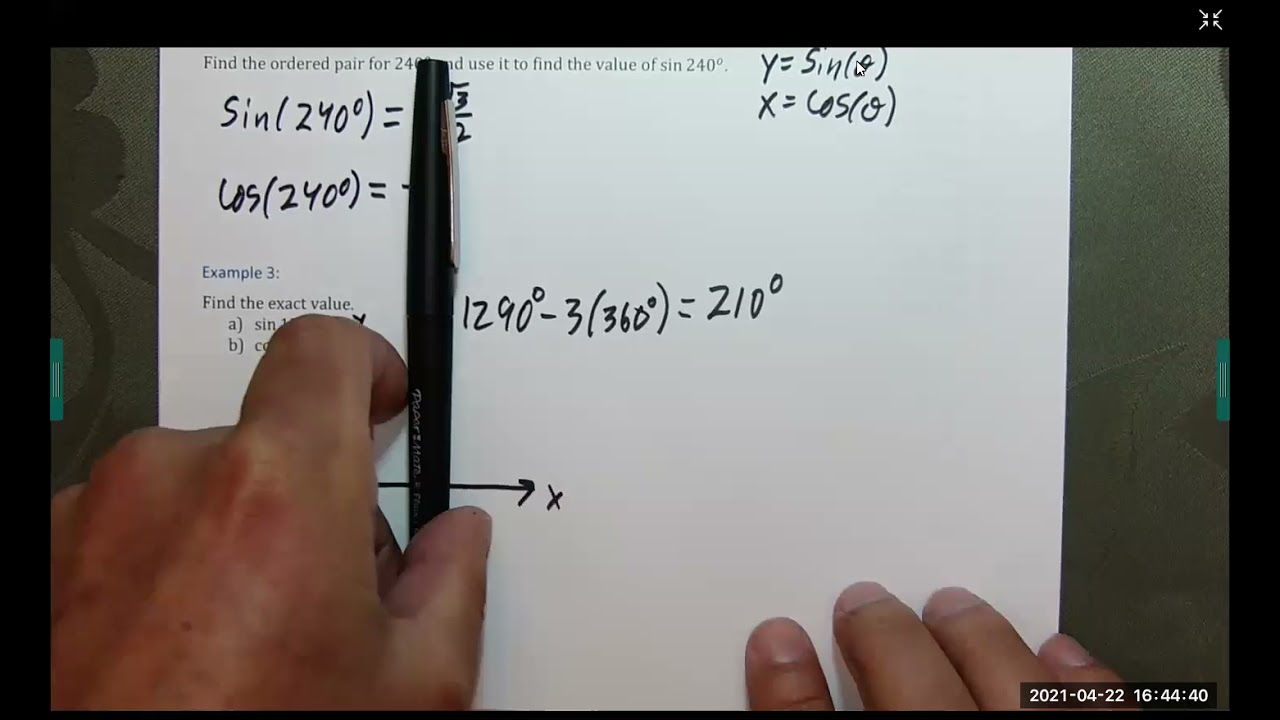 Find the ordered pair for 240° and use it to find the value of sin 240°.
y = Sin(θ)
x = Cos(θ)
Sin(240°) = √3/2
Cos(240°) = -
Example 3:
Find the exact value.
1290° - 3(360°) = 210°
a) sin
b)
x
Paper:Mate
2021-04-22 16:44:40